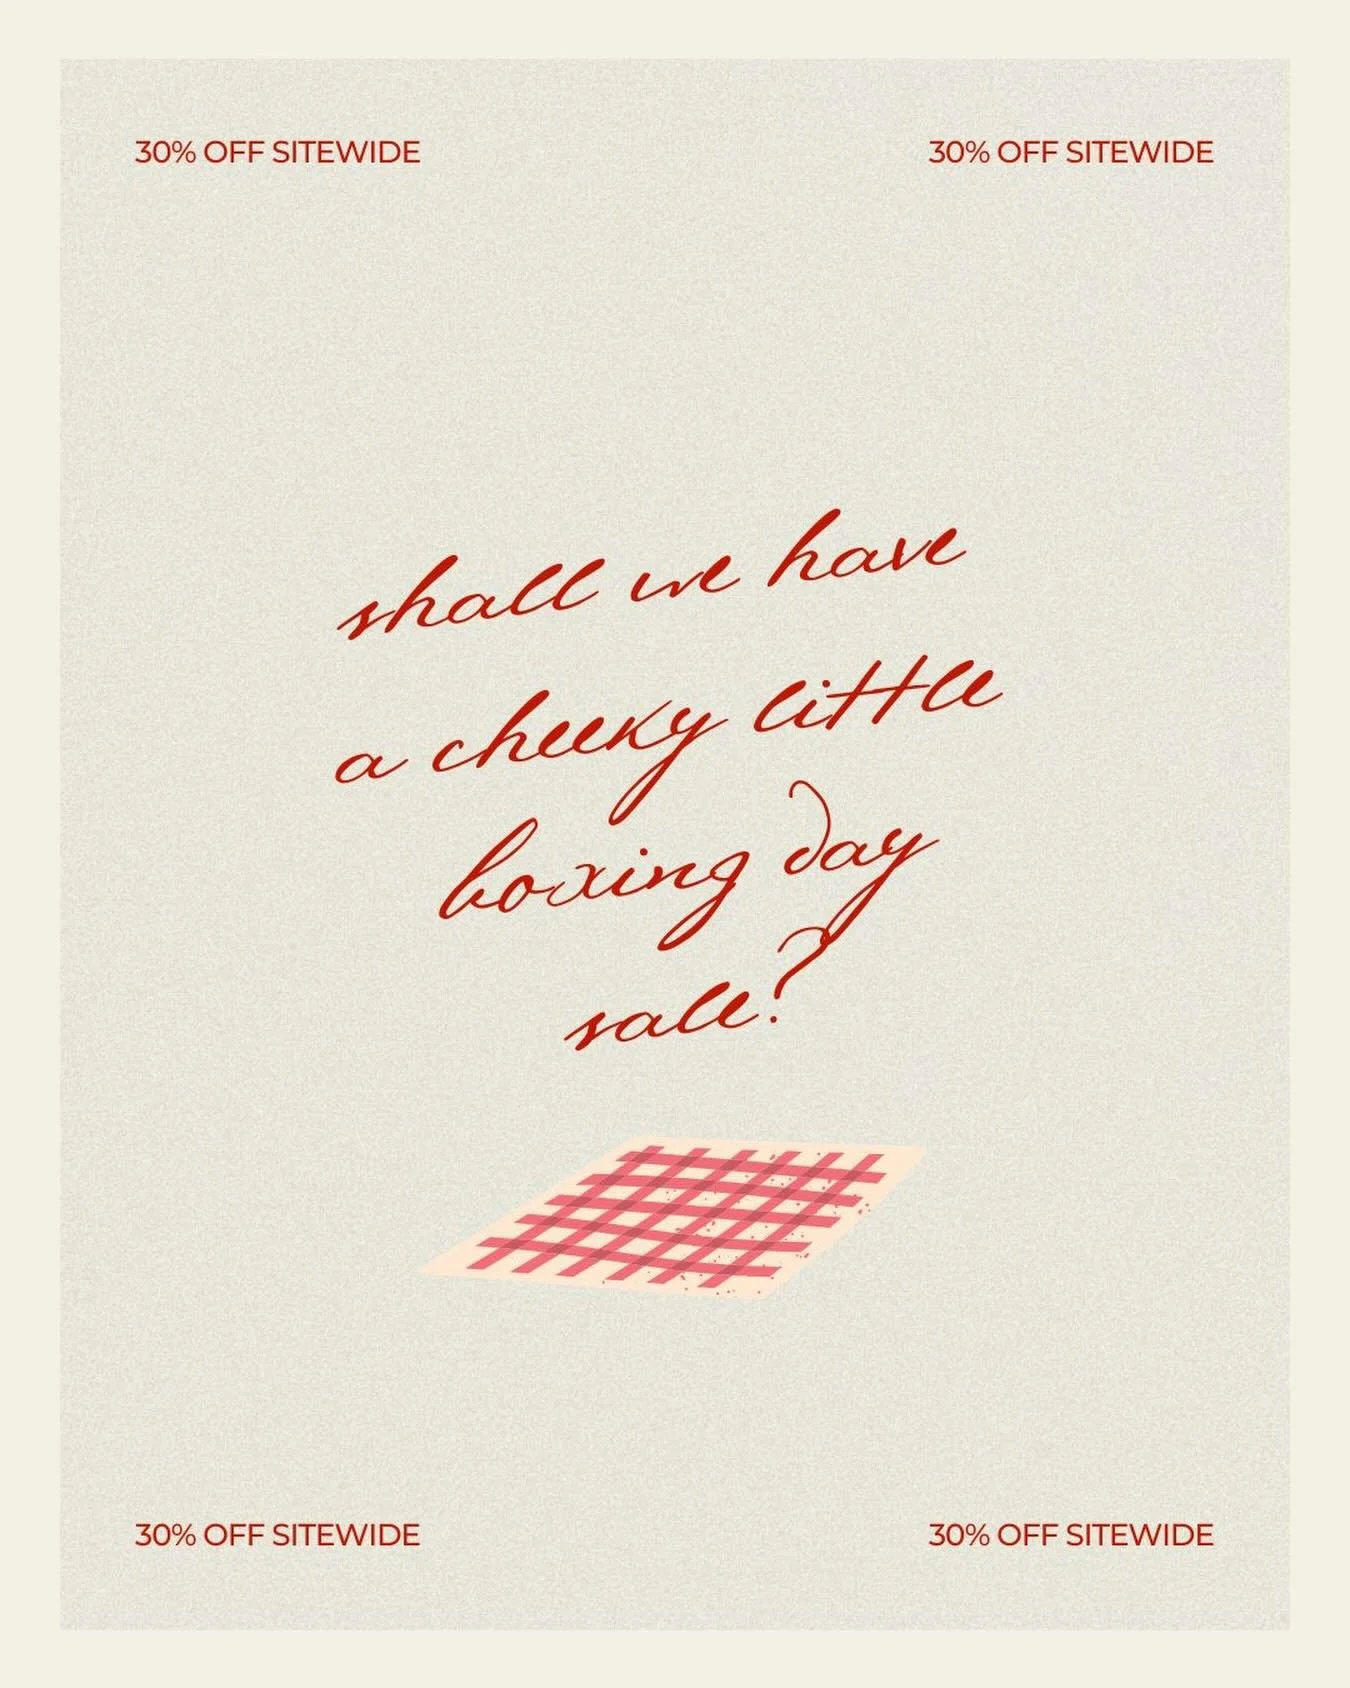 30% OFF SITEWIDE
30% OFF SITEWIDE
shall we have
a cheeky little
boxing day
sale?
30% OFF SITEWIDE
30% OFF SITEWIDE